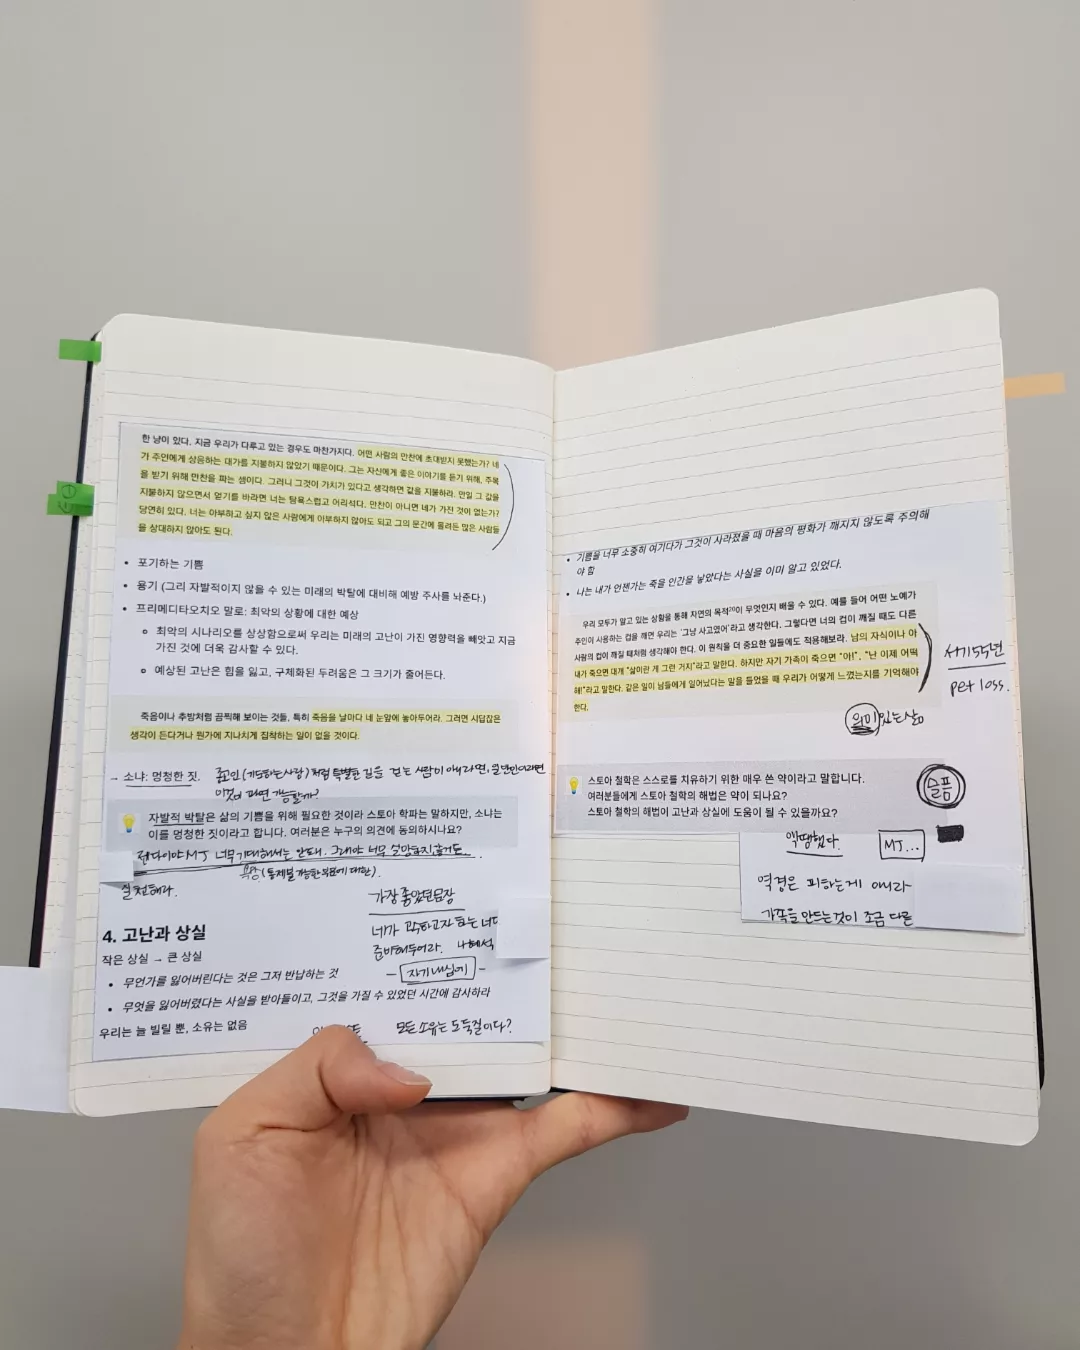 한 냥이 있다. 지금 우리가 다루고 있는 경우도 마찬가지다. 어떤 사람의 만찬에 초대받지 못했는가? 네
가 주인에게 상응하는 대가를 지불하지 않았기 때문이다. 그는 자신에게 좋은 이야기를 듣기 위해, 주목
을 받기 위해 만찬을 파는 셈이다. 그러니 그것이 가치가 있다고 생각하면 값을 지불하라. 만일 그 값을
지불하지 않으면서 얻기를 바라면 너는 탐욕스럽고 어리석다. 만찬이 아니면 네가 가진 것이 없는가?
당연히 있다. 너는 아부하고 싶지 않은 사람에게 아부하지 않아도 되고 그의 문간에 몰려든 많은 사람들
을 상대하지 않아도 된다.
• 포기하는 기쁨
• 용기 (그리 자발적이지 않을 수 있는 미래의 박탈에 대비해 예방 주사를 놔준다.)
• 프리메디타오치오 말로: 최악의 상황에 대한 예상
최악의 시나리오를 상상함으로써 우리는 미래의 고난이 가진 영향력을 빼앗고 지금
가진 것에 더욱 감사할 수 있다.
예상된 고난은 힘을 잃고, 구체화된 두려움은 그 크기가 줄어든다.
죽음이나 추방처럼 끔찍해 보이는 것들, 특히 죽음을 날마다 네 눈앞에 놓아두어라. 그러면 시답잖은
생각이 든다거나 뭔가에 지나치게 집착하는 일이 없을 것이다.
→ 소냐: 멍청한 짓. 처럼 특별한 길을 걷는 사람이 아니라면,
이것이 과연 가능할까?
자발적 박탈은 삶의 기쁨을 위해 필요한 것이라 스토아 학파는 말하지만, 소냐는
이를 멍청한 짓이라고 합니다. 여러분은 누구의 의견에 동의하시나요?
MJ 너무 기대해서는 안돼. 그래야 너무
욕망(통제불가능한 부분에 대한).
실천해라.
가장 좋았던 문장
4. 고난과 상실
네가 하고자 하는
준비해두어라. 나혜석
작은 상실 → 큰 상실
자기내심에
• 무언가를 잃어버린다는 것은 그저 반납하는 것
• 무엇을 잃어버렸다는 사실을 받아들이고, 그것을 가질 수 있었던 시간에 감사하라
우리는 늘 빌릴 뿐, 소유는 없음
모든 소유는 도둑질이다?
• 기쁨을 너무 소중히 여기다가 그것이 사라졌을 때 마음의 평화가 깨지지 않도록 주의해
야 함
• 나는 내가 언젠가는 죽을 인간을 낳았다는 사실을 이미 알고 있었다.
우리 모두가 알고 있는 상황을 통해 자연의 목적20이 무엇인지 배울 수 있다. 예를 들어 어떤 노예가
주인이 사용하는 컵을 깨면 우리는 '그냥 사고였어'라고 생각한다. 그렇다면 너의 컵이 깨질 때도 다른
사람의 컵이 깨질 때처럼 생각해야 한다. 이 원칙을 더 중요한 일들에도 적용해보라. 남의 자식이나 아
내가 죽으면 대개 "삶이란 게 그런 거지"라고 말한다. 하지만 자기 가족이 죽으면 "아!", "난 이제 어떡
해!"라고 말한다. 같은 일이 남들에게 일어났다는 말을 들었을 때 우리가 어떻게 느꼈는지를 기억해야
한다.
서기55년
pet loss.
의미있는 삶
스토아 철학은 스스로를 치유하기 위한 매우 쓴 약이라고 말합니다.
여러분들에게 스토아 철학의 해법은 약이 되나요?
스토아 철학의 해법이 고난과 상실에 도움이 될 수 있을까요?
슬픔
액땜했다.
MJ...
역경은 피하는게 아니라
가족을 만드는것이 조금 다른